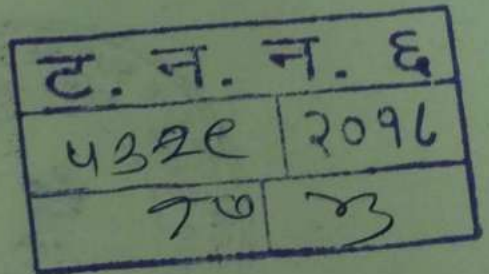 ट. न. न. ६
५३२९ २०१८
१७